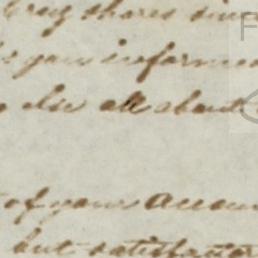 shares since
you informed
else all about
of your Accoun
but satisfactor